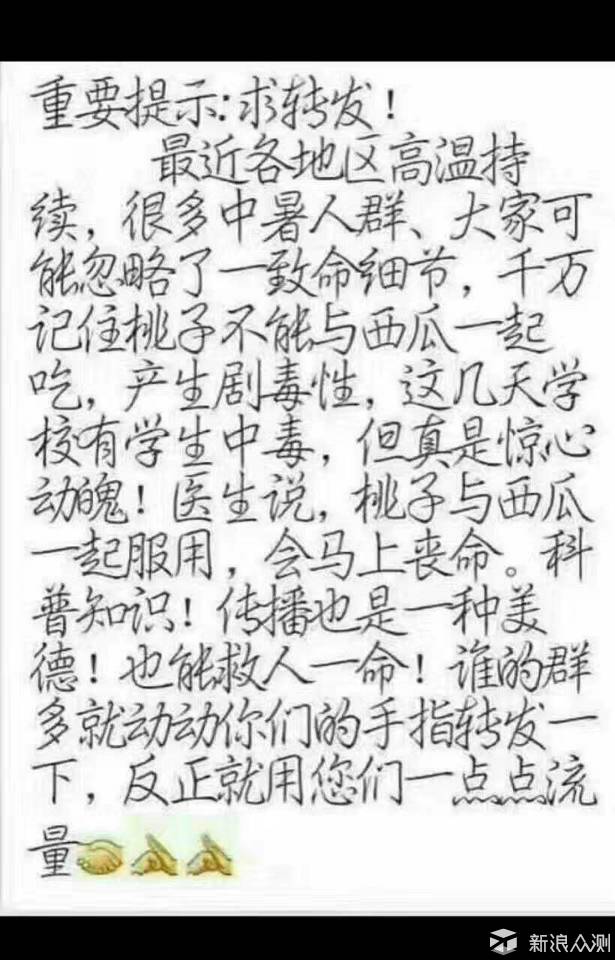 重要提示:求转发！
最近各地区高温持
续，很多中暑人群、大家可
能忽略了一致命细节，千万
记住桃子不能与西瓜一起
吃，产生剧毒性，这几天学
校有学生中毒，但真是惊心
动魄！医生说，桃子与西瓜
一起服用，会马上丧命。科
普知识！传播也是一种美
德！也能救人一命！谁的群
多就动动你们的手指转发一
下，反正就用您们一点点流
量
新浪众测